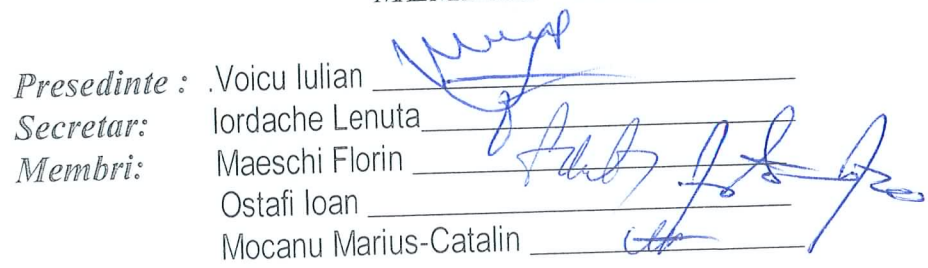 Presedinte : .Voicu Iulian
Secretar: Iordache Lenuta
Membri: Maeschi Florin
Ostafi Ioan
Mocanu Marius-Catalin